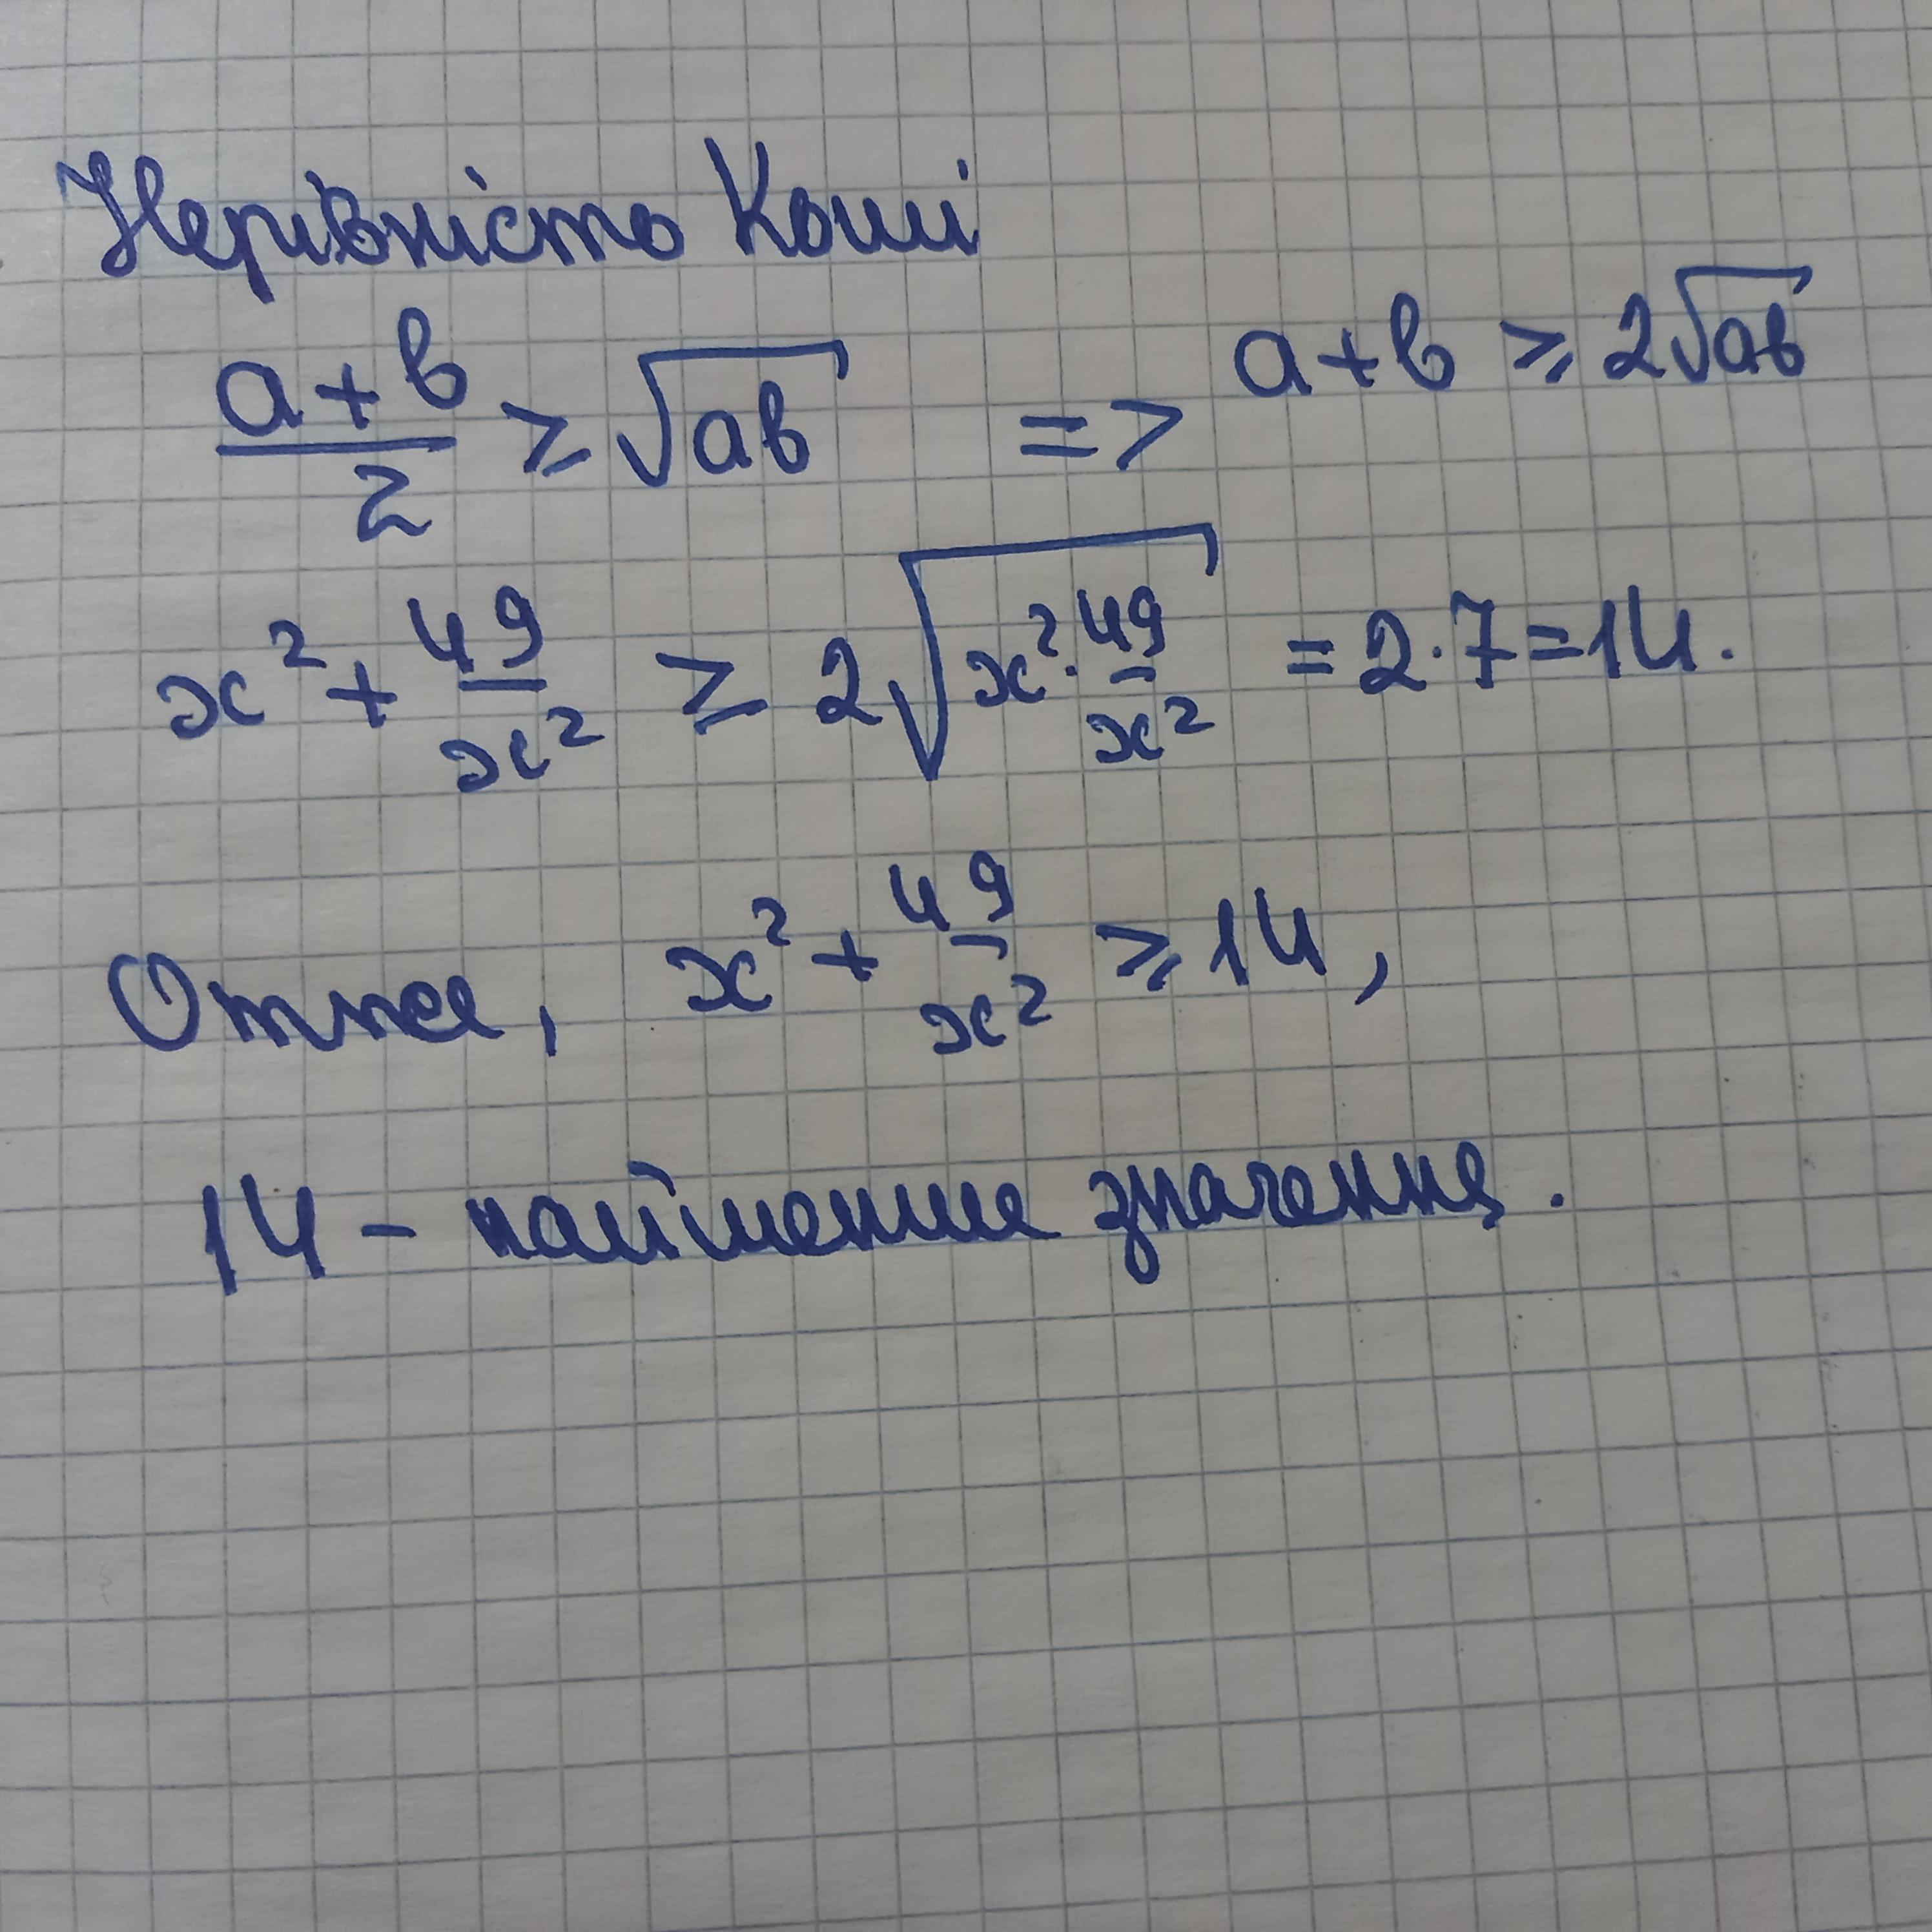 Нерівність Коші
(a+b)/2 ≥ √ab => a+b ≥ 2√ab
x² + 49/x² ≥ 2√(x² · 49/x²) = 2·7=14.
Отже, x² + 49/x² ≥ 14,
14 - найменше значення.